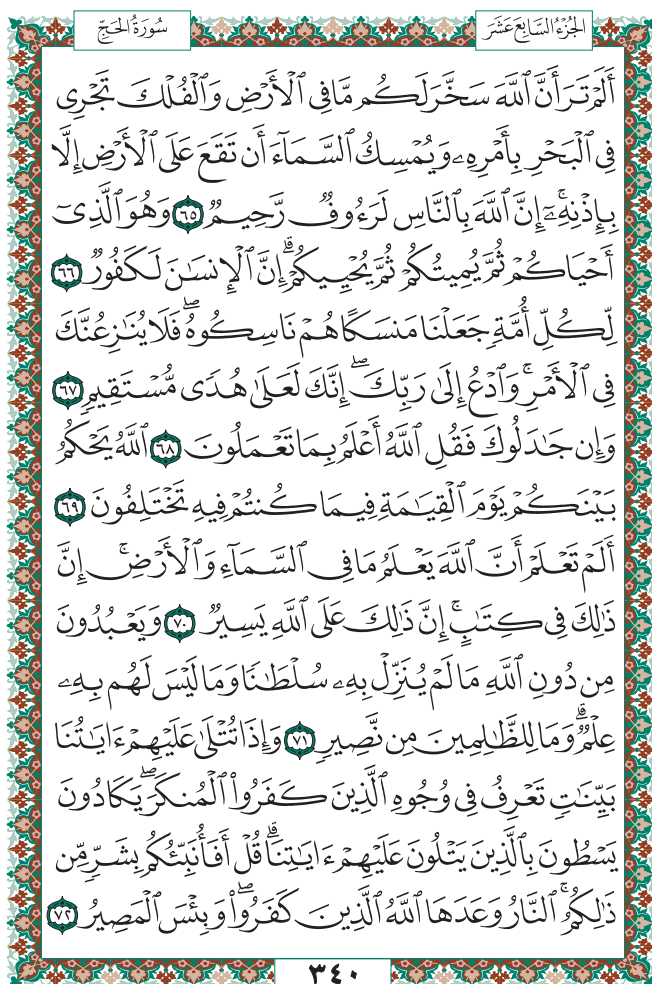 سُورَةُ الحَجِّ
الجُزْءُ السَّابِعَ عَشَرَ
أَلَمْ تَرَ أَنَّ ٱللَّهَ سَخَّرَ لَكُم مَّا فِى ٱلْأَرْضِ وَٱلْفُلْكَ تَجْرِى
فِى ٱلْبَحْرِ بِأَمْرِهِۦ وَيُمْسِكُ ٱلسَّمَآءَ أَن تَقَعَ عَلَى ٱلْأَرْضِ إِلَّا
بِإِذْنِهِۦٓ ۚ إِنَّ ٱللَّهَ بِٱلنَّاسِ لَرَءُوفٌ رَّحِيمٌ ٦٥ وَهُوَ ٱلَّذِىٓ
أَحْيَاكُمْ ثُمَّ يُمِيتُكُمْ ثُمَّ يُحْيِيكُمْ ۗ إِنَّ ٱلْإِنسَـٰنَ لَكَفُورٌ ٦٦
لِّكُلِّ أُمَّةٍ جَعَلْنَا مَنسَكًا هُمْ نَاسِكُوهُ ۖ فَلَا يُنَـٰزِعُنَّكَ
فِى ٱلْأَمْرِ ۚ وَٱدْعُ إِلَىٰ رَبِّكَ ۖ إِنَّكَ لَعَلَىٰ هُدًى مُّسْتَقِيمٍ ٦٧
وَإِن جَـٰدَلُوكَ فَقُلِ ٱللَّهُ أَعْلَمُ بِمَا تَعْمَلُونَ ٦٨ ٱللَّهُ يَحْكُمُ
بَيْنَكُمْ يَوْمَ ٱلْقِيَـٰمَةِ فِيمَا كُنتُمْ فِيهِ تَخْتَلِفُونَ ٦٩
أَلَمْ تَعْلَمْ أَنَّ ٱللَّهَ يَعْلَمُ مَا فِى ٱلسَّمَآءِ وَٱلْأَرْضِ ۗ إِنَّ
ذَٰلِكَ فِى كِتَـٰبٍ ۚ إِنَّ ذَٰلِكَ عَلَى ٱللَّهِ يَسِيرٌ ٧٠ وَيَعْبُدُونَ
مِن دُونِ ٱللَّهِ مَا لَمْ يُنَزِّلْ بِهِۦ سُلْطَـٰنًا وَمَا لَيْسَ لَهُم بِهِۦ
عِلْمٌ ۗ وَمَا لِلظَّـٰلِمِينَ مِن نَّصِيرٍ ٧١ وَإِذَا تُتْلَىٰ عَلَيْهِمْ ءَايَـٰتُنَا
بَيِّنَـٰتٍ تَعْرِفُ فِى وُجُوهِ ٱلَّذِينَ كَفَرُوا۟ ٱلْمُنكَرَ ۖ يَكَادُونَ
يَسْطُونَ بِٱلَّذِينَ يَتْلُونَ عَلَيْهِمْ ءَايَـٰتِنَا ۗ قُلْ أَفَأُنَبِّئُكُم بِشَرٍّ مِّن
ذَٰلِكُمُ ۚ ٱلنَّارُ وَعَدَهَا ٱللَّهُ ٱلَّذِينَ كَفَرُوا۟ ۖ وَبِئْسَ ٱلْمَصِيرُ ٧٢
٣٤٠